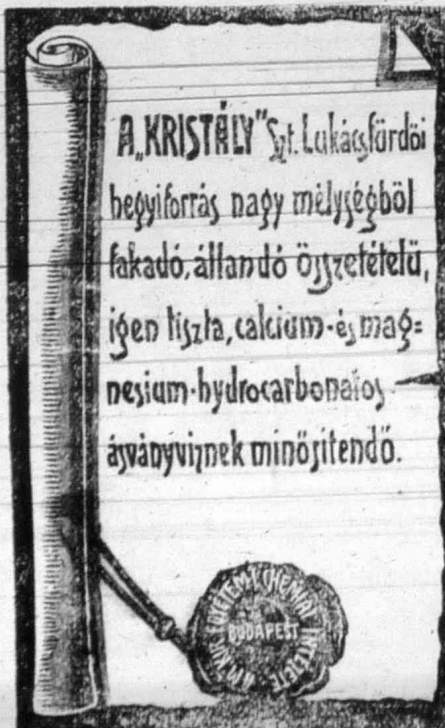 A „KRISTÁLY" Szt. Lukácsfürdői
hegyiforrás nagy mélységből
fakadó, állandó összetételű,
igen tiszta, calcium- és mag=
nesium-hydrocarbonatos
ásványviznek minősitendő.
EGYETEMI CHEMIAI INTÉZETE
BUDAPEST